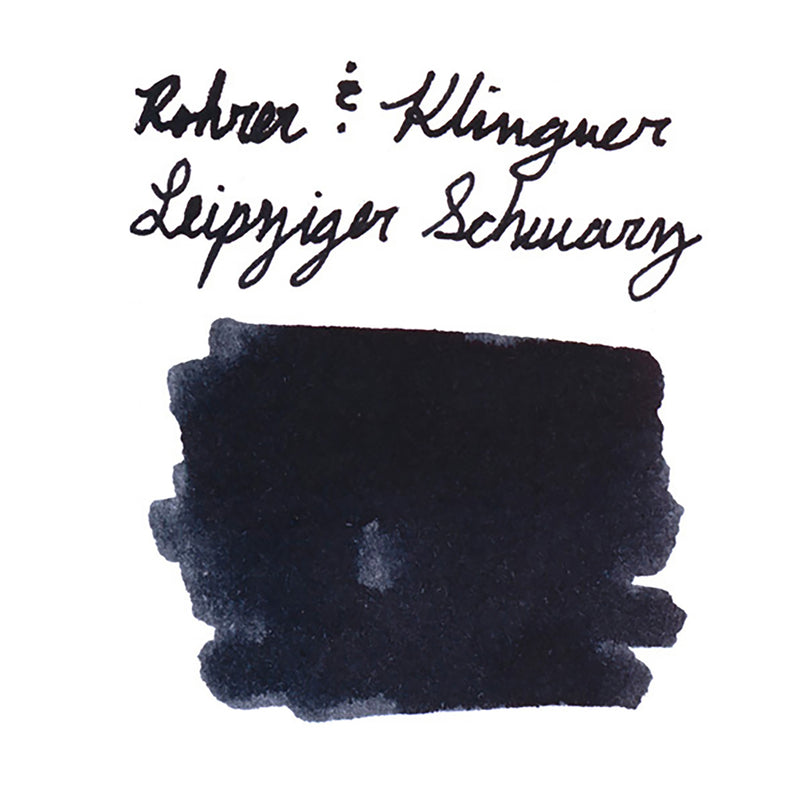 Rohrer & Klingner
Leipziger Schwarz